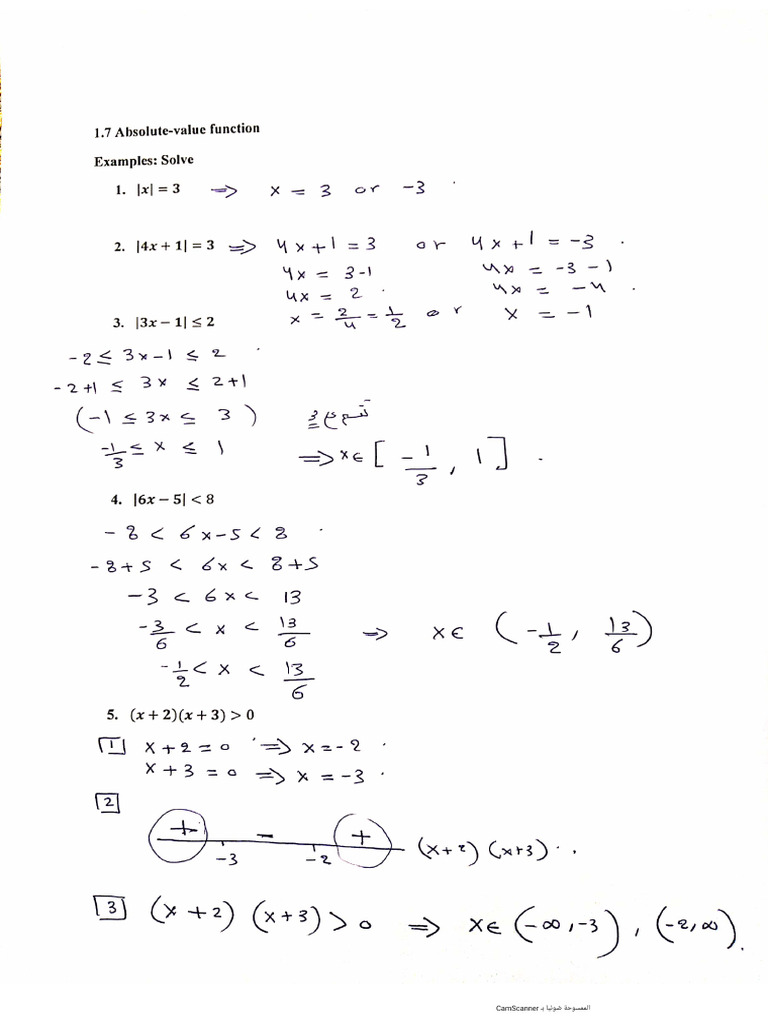 1.7 Absolute-value function
Examples: Solve
1. |x| = 3 ⇒ x = 3 or -3 .
2. |4x + 1| = 3 ⇒ 4x+1 = 3 or 4x+1 = -3 .
4x = 3-1 4x = -3 - 1
4x = 2 . 4x = -4 .
x = 2/4 = 1/2 or x = -1
3. |3x − 1| ≤ 2
-2 ≤ 3x-1 ≤ 2 .
-2+1 ≤ 3x ≤ 2+1
(-1 ≤ 3x ≤ 3)
-1/3 ≤ x ≤ 1 ⇒ x∈ [-1/3 , 1] .
4. |6x − 5| < 8
-8 < 6x-5 < 8 .
-8+5 < 6x < 8+5
-3 < 6x < 13
-3/6 < x < 13/6 ⇒ x∈ (-1/2 , 13/6)
-1/2 < x < 13/6
5. (x + 2)(x + 3) > 0
1 x+2=0 ⇒ x=-2 .
x+3=0 ⇒ x=-3 .
2
+ − +
-3 -2 (x+2) (x+3) . .
3 (x+2) (x+3) > 0 ⇒ x∈ (-∞,-3) , (-2,∞).
الممسوحة ضوئيا بـ CamScanner